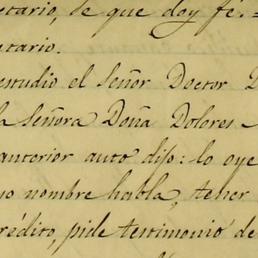 etario, de que doy fé. =
etario.
estudio el Señor Doctor D
la Señora Doña Dolores
anterior auto dijo: lo oye
no nombre habla, tener
rédito, pide testimonio de